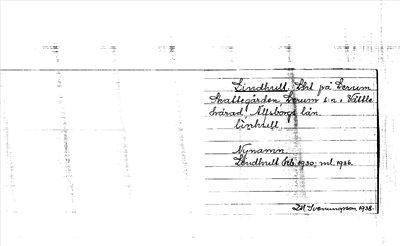 Lindhult, Lht på Lerum
Skattegården, Lerum s:n i Vättle
härad, Älfsborgs län.
linhult
Nynamn.
Lindhult Jrb. 1930; ml. 1936.
Svenningson 1938.